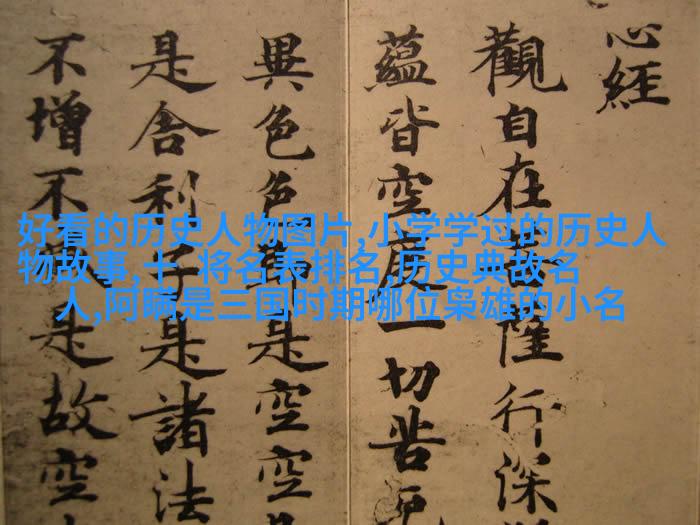 心經
觀自在菩薩行深
蘊皆空度一切苦厄
異色色即是空空
是舍利子是諸法
不增不減是故空
好看的历史人物图片,小学学过的历史人
物故事,十 将名表排名,历史典故名
人,阿瞒是三国时期哪位枭雄的小名